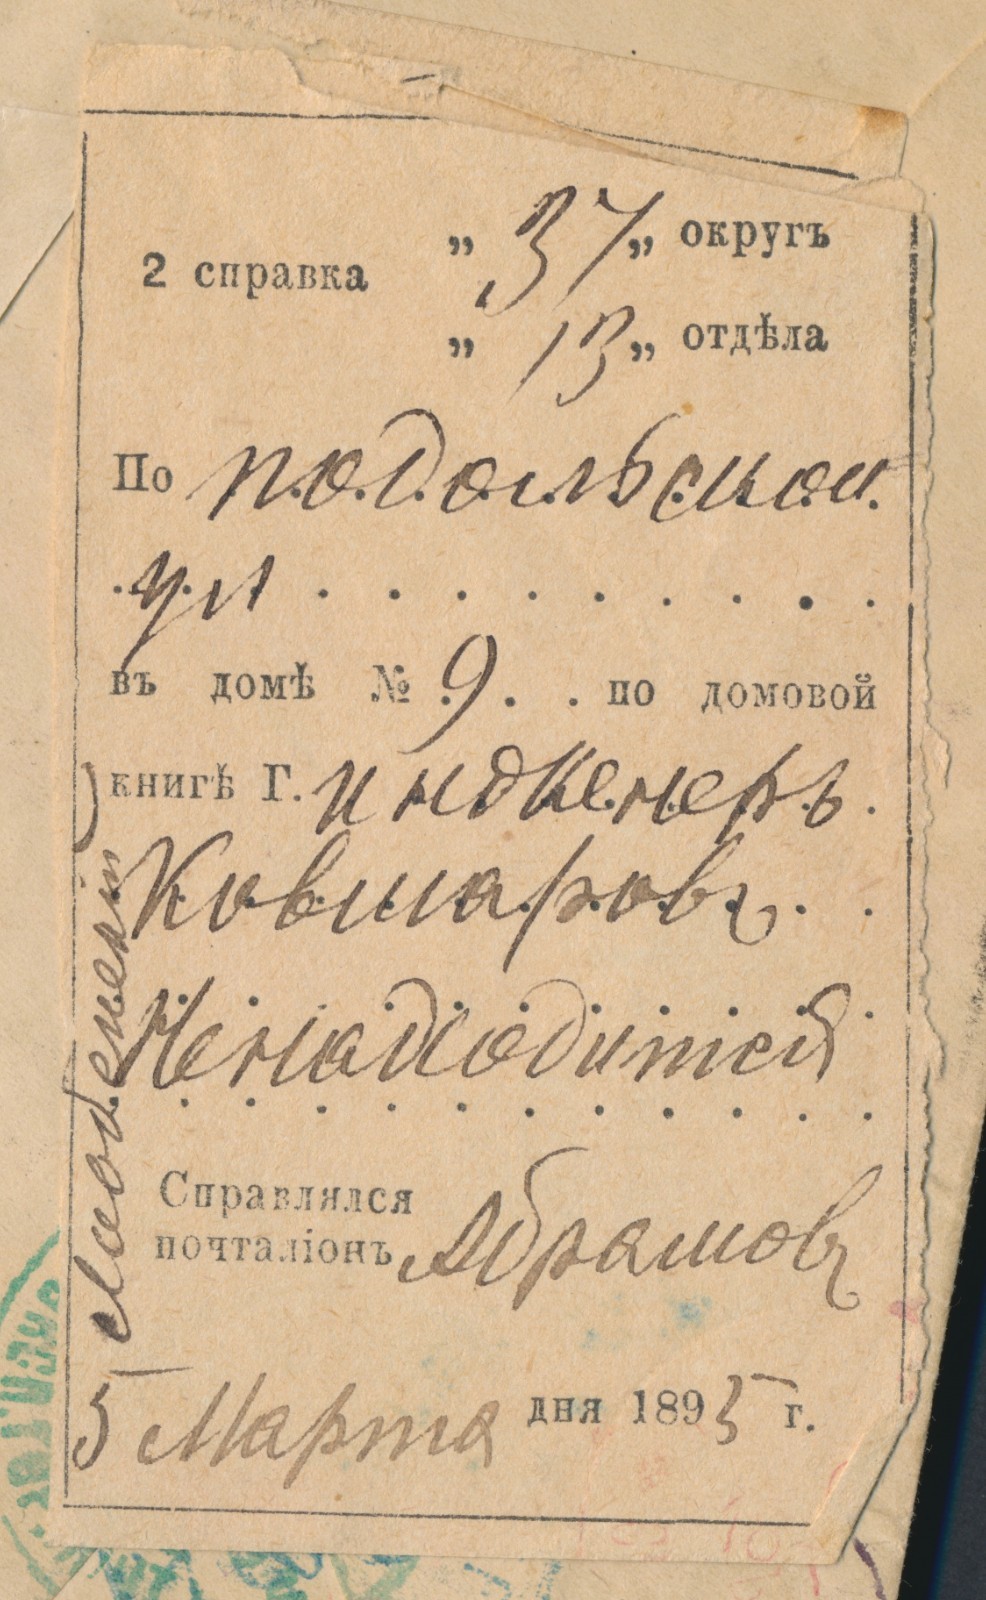 2 справка
„ 37 „ округъ
„ 13 „ отдѣла
По подольскои
ул
въ домѣ № 9 по домовой
книгѣ Г. индженеръ
Ковшаровъ
Ненаходится
Справлялся
почталіонъ Абрамовъ
5 Марта дня 1895 г.